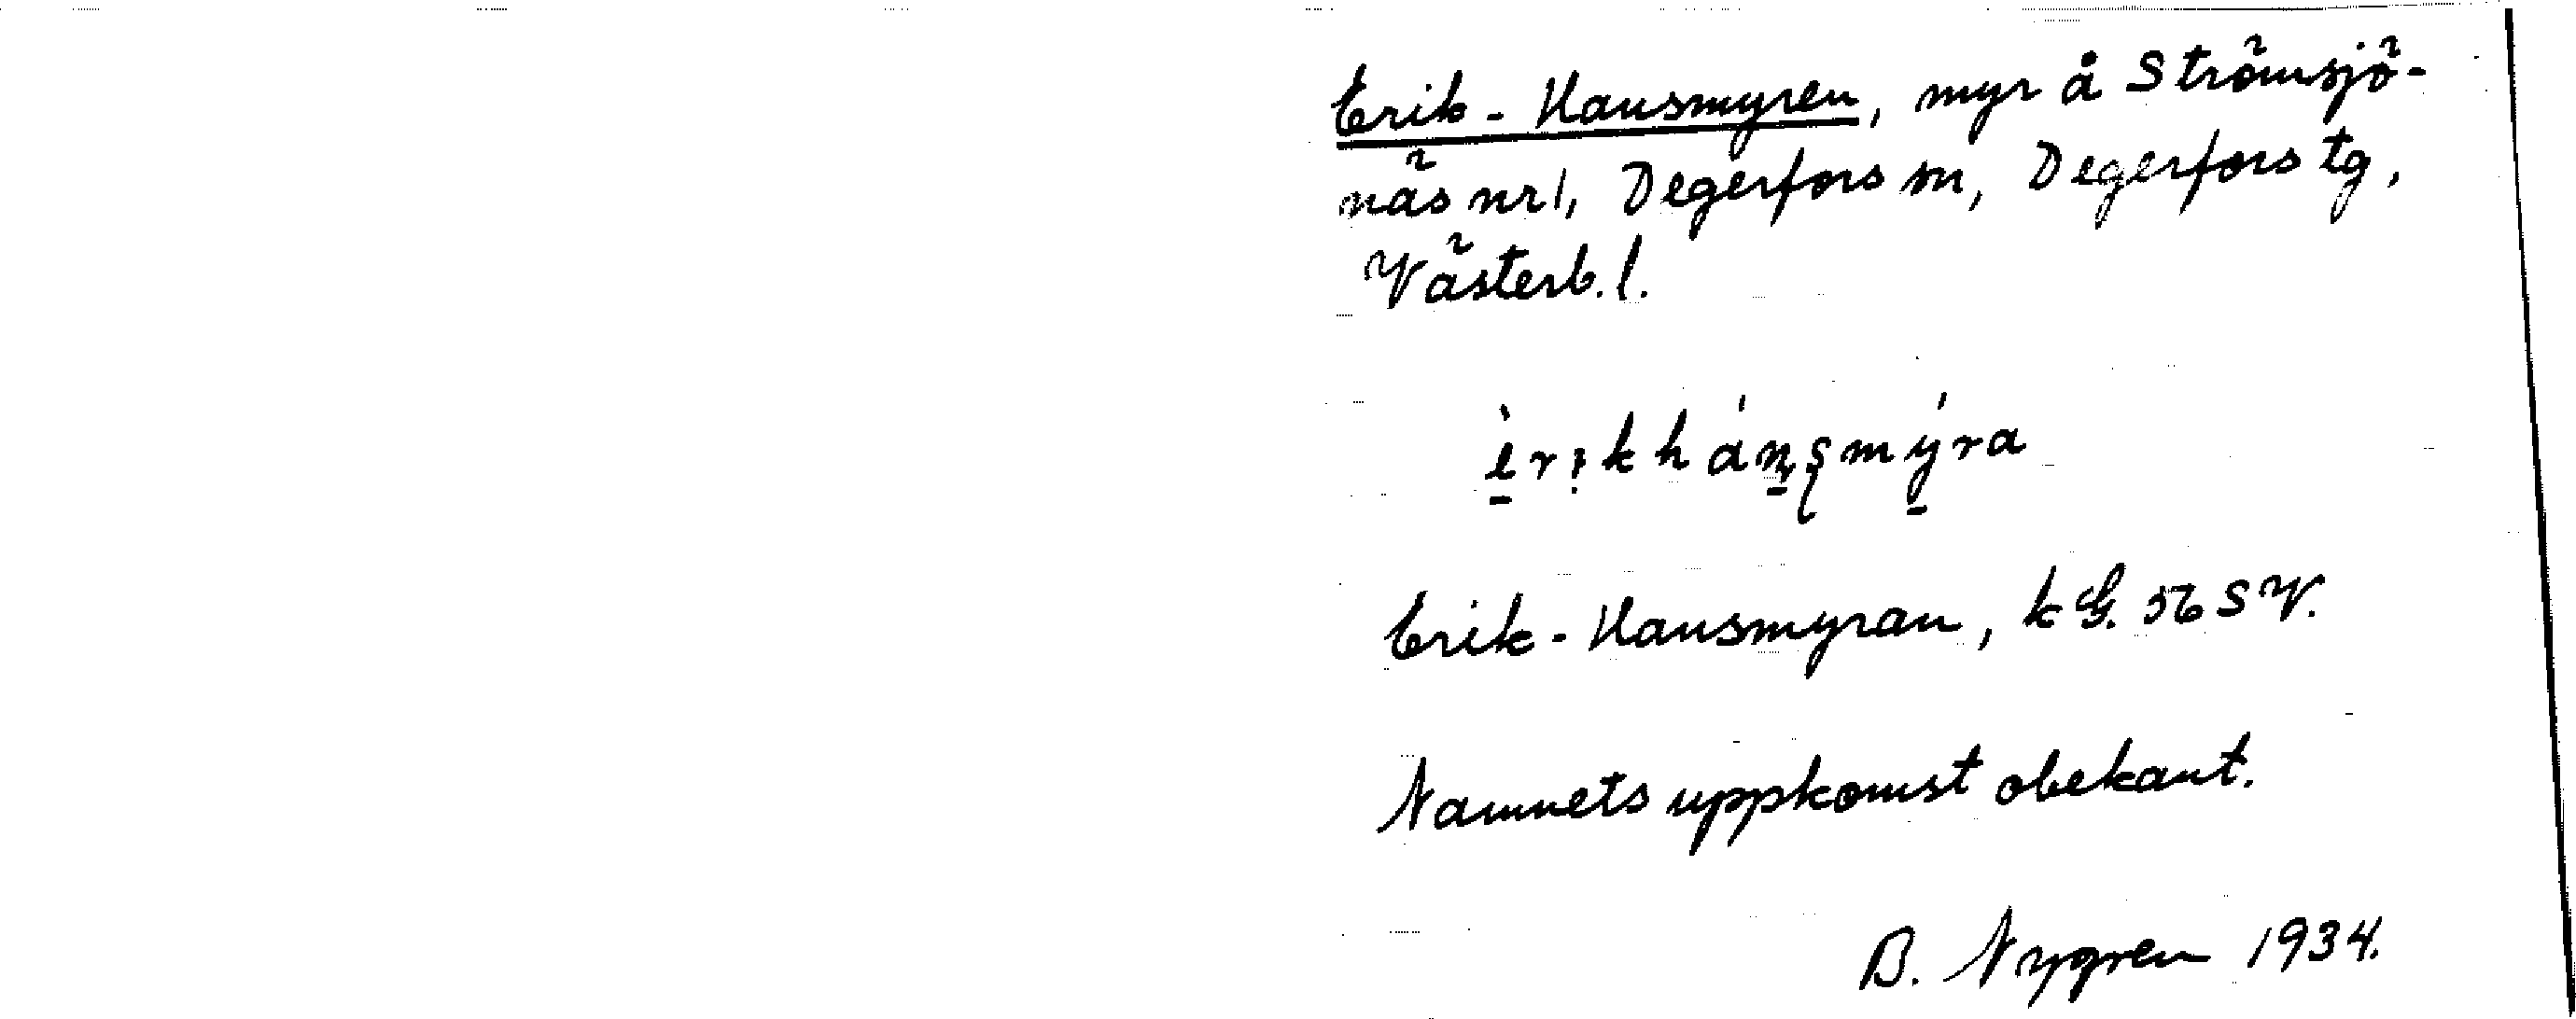 Erik-Hansmyren, myr å Strömsjö-
näs nr 1, Degerfors sn, Degerfors tg,
Västerb. l.
èrikhánsmýra
Erik-Hansmyran, k G. 56 S V.
Namnets uppkomst obekant.
B. Nygren 1934.